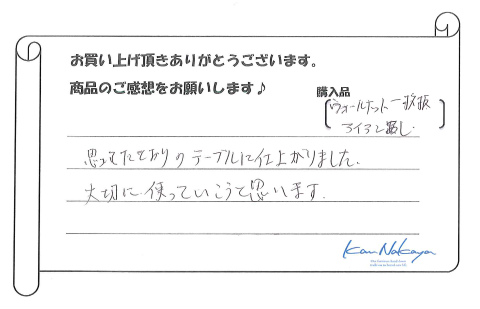 お買い上げ頂きありがとうございます。
商品のご感想をお願いします♪
購入品
ウォールナット一枚板
アイアン脚し.
思ってたとおりのテーブルに仕上がりました.
大切に使っていこうと思います.
Kan Nakaya